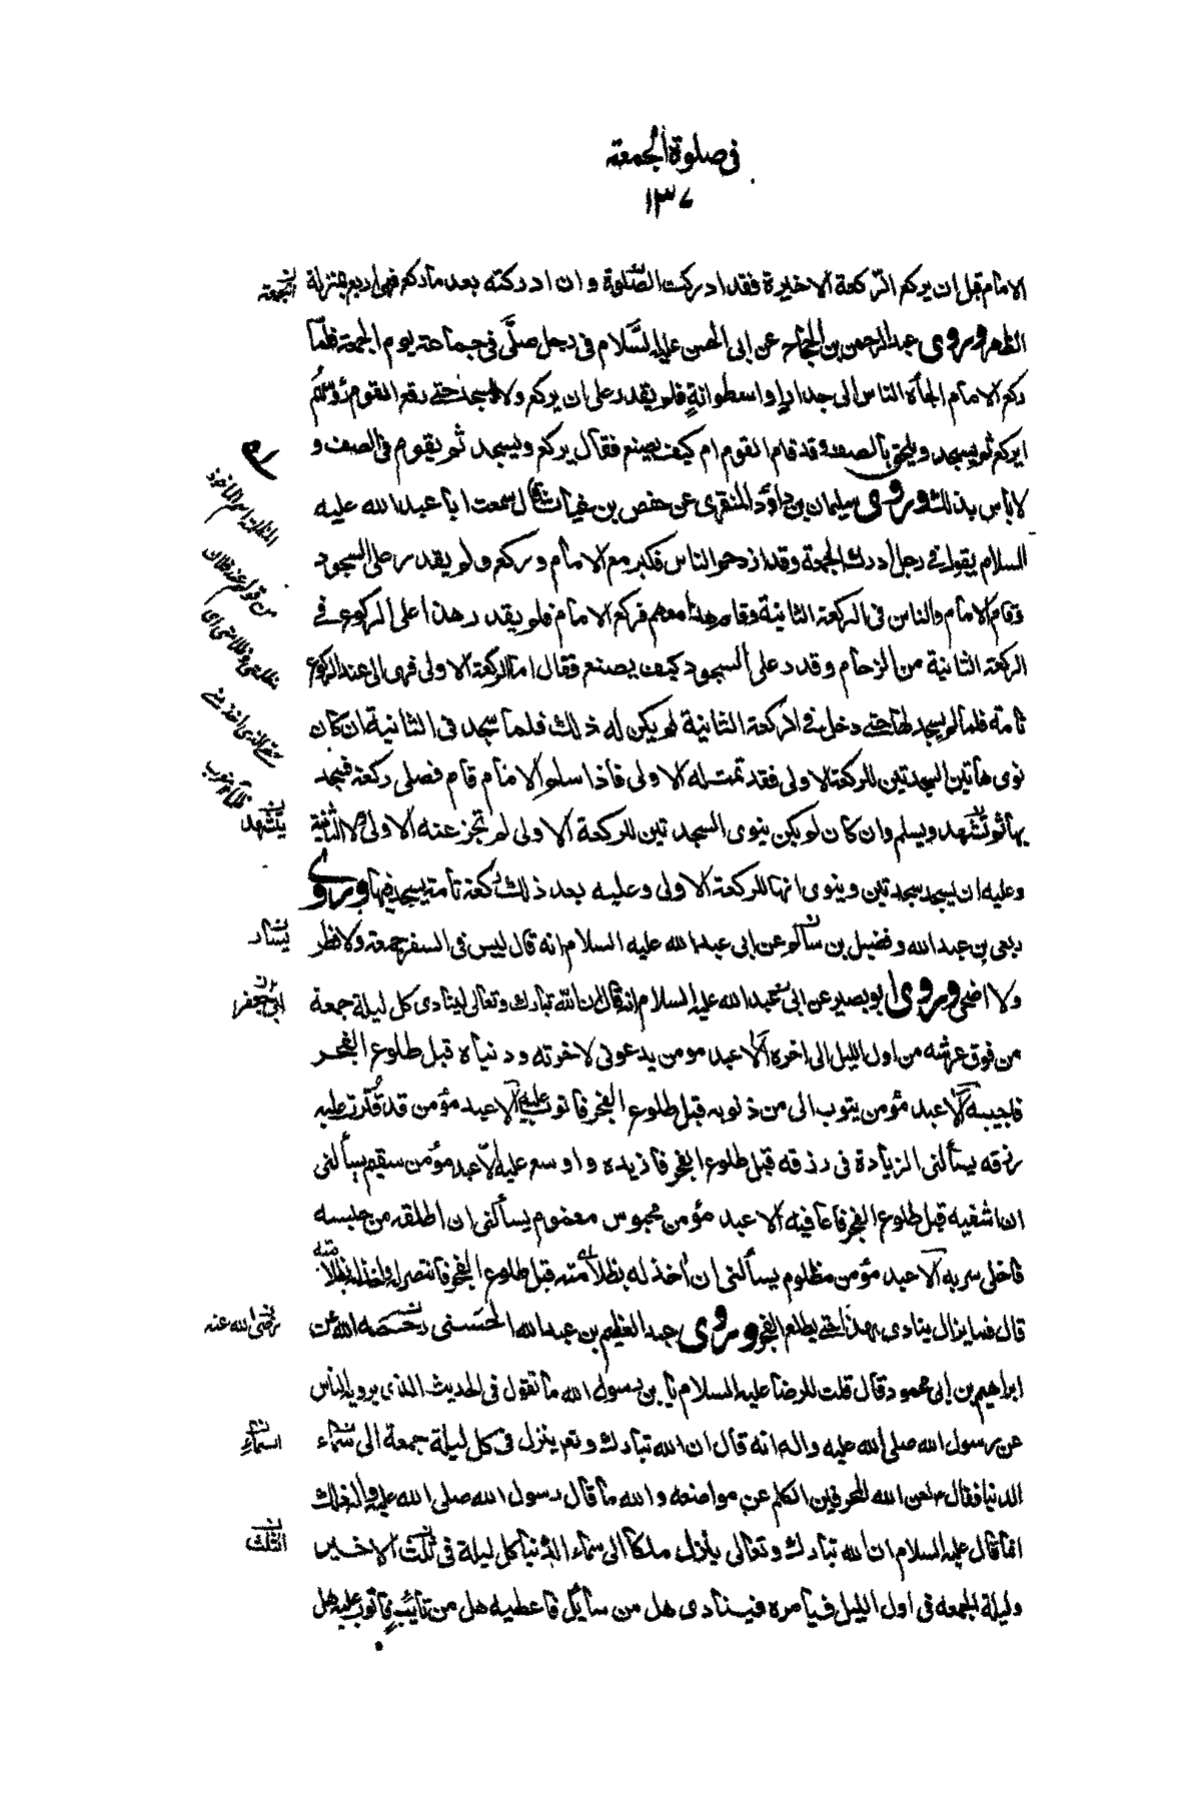 في صلوة الجمعة
١٣٧
الامام قبل ان يركع الركعة الاخيرة فقد ادركت الصلوة وان ادركته بعد ما ركع فهي اربع بمنزلة
الجمعة
الظهر وروى عبد الرحمن بن الحجاج عن ابى الحسن عليه السلام في رجل صلى في جماعة يوم الجمعة فلما
ركع الامام الجأه الناس الى جدار او اسطوانة فلم يقدر على ان يركع ولا يسجد حتى رفع القوم رؤسهم
ايركع ثم يسجد ويلحق بالصف وقد قام القوم ام كيف يصنع فقال يركع ويسجد ثم يقوم في الصف و
لا باس بذلك وروى سليمان بن داؤد المنقرى عن حفص بن غياث قال سمعت ابا عبد الله عليه
السلام يقول في رجل ادرك الجمعة وقد ازدحم الناس فكبر مع الامام وركع ولم يقدر على السجود
وقام الامام والناس في الركعة الثانية وقام هذا معهم فركع الامام فلم يقدر هذا على الركوع في
الركعة الثانية من الزحام وقدر على السجود كيف يصنع فقال اما الركعة الاولى فهى الى عند الركوع
تامة فلما لم يسجد لها حتى دخل في الركعة الثانية لم يكن له ذلك فلما سجد في الثانية ان كان
نوى هاتين السجدتين للركعة الاولى فقد تمت له الاولى فاذا سلم الامام قام فصلى ركعة فيسجد
بها ثم تشهد ويسلم وان كان لم يكن ينوى السجدتين للركعة الاولى لم تجز عنه الاولى ولا الثانية
يتشهد
وعليه ان يسجد سجدتين وينوى انها للركعة الاولى وعليه بعد ذلك ركعة تامة يسجد فيها وروى
ربعى بن عبد الله وفضيل بن سالم عن ابى عبد الله عليه السلام انه قال ليس في السفر جمعة ولا فطر
يسار
ولا اضحى وروى ابو بصير عن ابى عبد الله عليه السلام انه قال ان الله تبارك وتعالى لينادى كل ليلة جمعة
ابى جعفر
من فوق عرشه من اول الليل الى اخره الا عبد مومن يدعونى لاخرته ودنياه قبل طلوع الفجر
فاجيبه الا عبد مؤمن يتوب الى من ذنوبه قبل طلوع الفجر فاتوب عليه الا عبد مؤمن قد قترت عليه
رزقه يسألنى الزيادة في رزقه قبل طلوع الفجر فازيده واوسع عليه الا عبد مؤمن سقيم يسألنى
ان اشفيه قبل طلوع الفجر فاعافيه الا عبد مؤمن محبوس مغموم يسألنى ان اطلقه من حبسه
فاخلى سربه الا عبد مؤمن مظلوم يسألنى ان أخذ له بظلامته قبل طلوع الفجر فانتصر له واخذ له بظلامته
قال فما يزال ينادى بهذا حتى يطلع الفجر وروى عبد العظيم بن عبد الله الحسنى رحمه الله عن
رضى الله عنه
ابراهيم بن ابى محمود قال قلت للرضا عليه السلام يا بن رسول الله ما تقول في الحديث الذى يرويه الناس
عن رسول الله صلى الله عليه واله انه قال ان الله تبارك وتعم ينزل في كل ليلة جمعة الى سماء
السماء
الدنيا فقال ع لعن الله المحرفين الكلم عن مواضعه والله ما قال رسول الله صلى الله عليه واله ذلك
انما قال عليه السلام ان الله تبارك وتعالى ينزل ملكا الى سماء الدنيا كل ليلة في ثلث الاخير
الثلث
وليلة الجمعة في اول الليل فيأمره فينادى هل من سائل فاعطيه هل من تائب فاتوب عليه هل